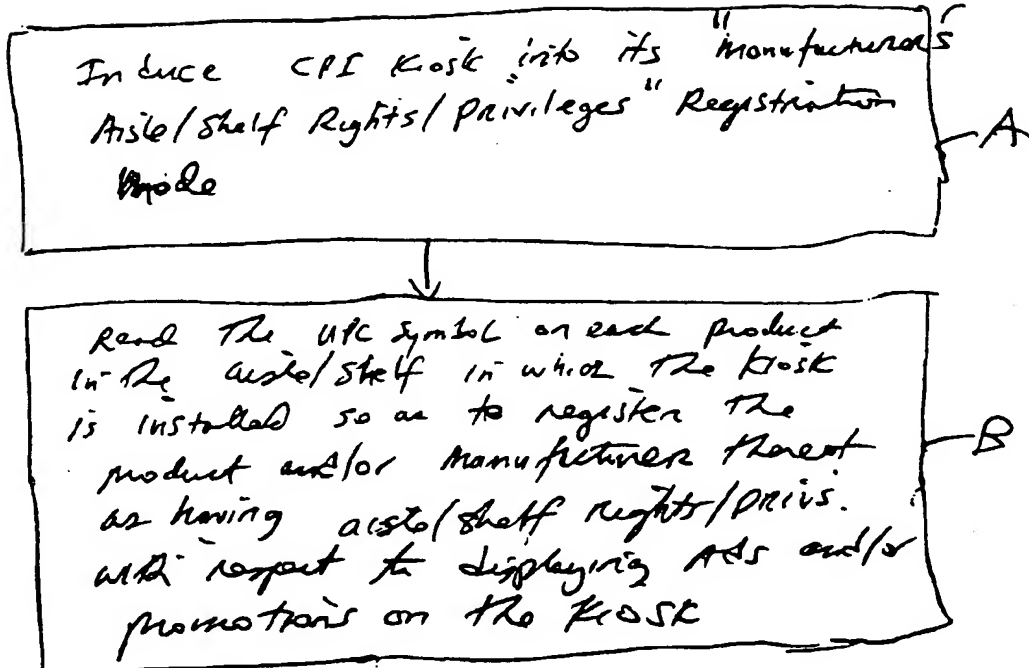 Induce CPI Kiosk into its "Manufacturers
Aisle/Shelf Rights/Privileges" Registration
Mode
A
Read The UPC Symbol on each product
in The aisle/shelf in which The Kiosk
is installed so as to register The
product and/or Manufacturer thereof
as having aisle/shelf rights/privs.
with respect to displaying Ads and/or
promotions on the Kiosk
B